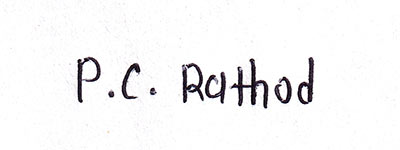 P.C. Rathod